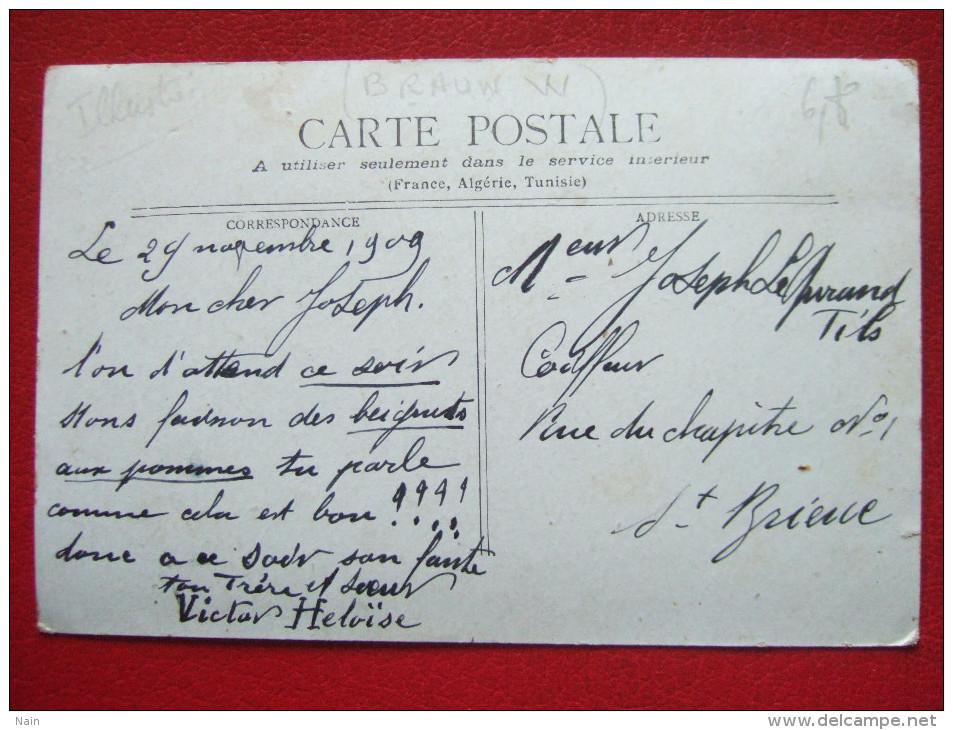 Illustré
(BRAUN W)
6,8
CARTE POSTALE
A utiliser seulement dans le service interieur
(France, Algérie, Tunisie)
CORRESPONDANCE
Le 29 novembre 1909
Mon cher Joseph.
l'on t'attend ce soir
Nous faison des beignets
aux pommes tu parle
comme cela est bon !!!!
donc a ce soir san faute
ton frère et soeur
Victor Heloïse
ADRESSE
Meur Joseph Le
Fils
Coiffeur
Rue du chapitre No 1
St Brieuc
Nain
www.delcampe.net